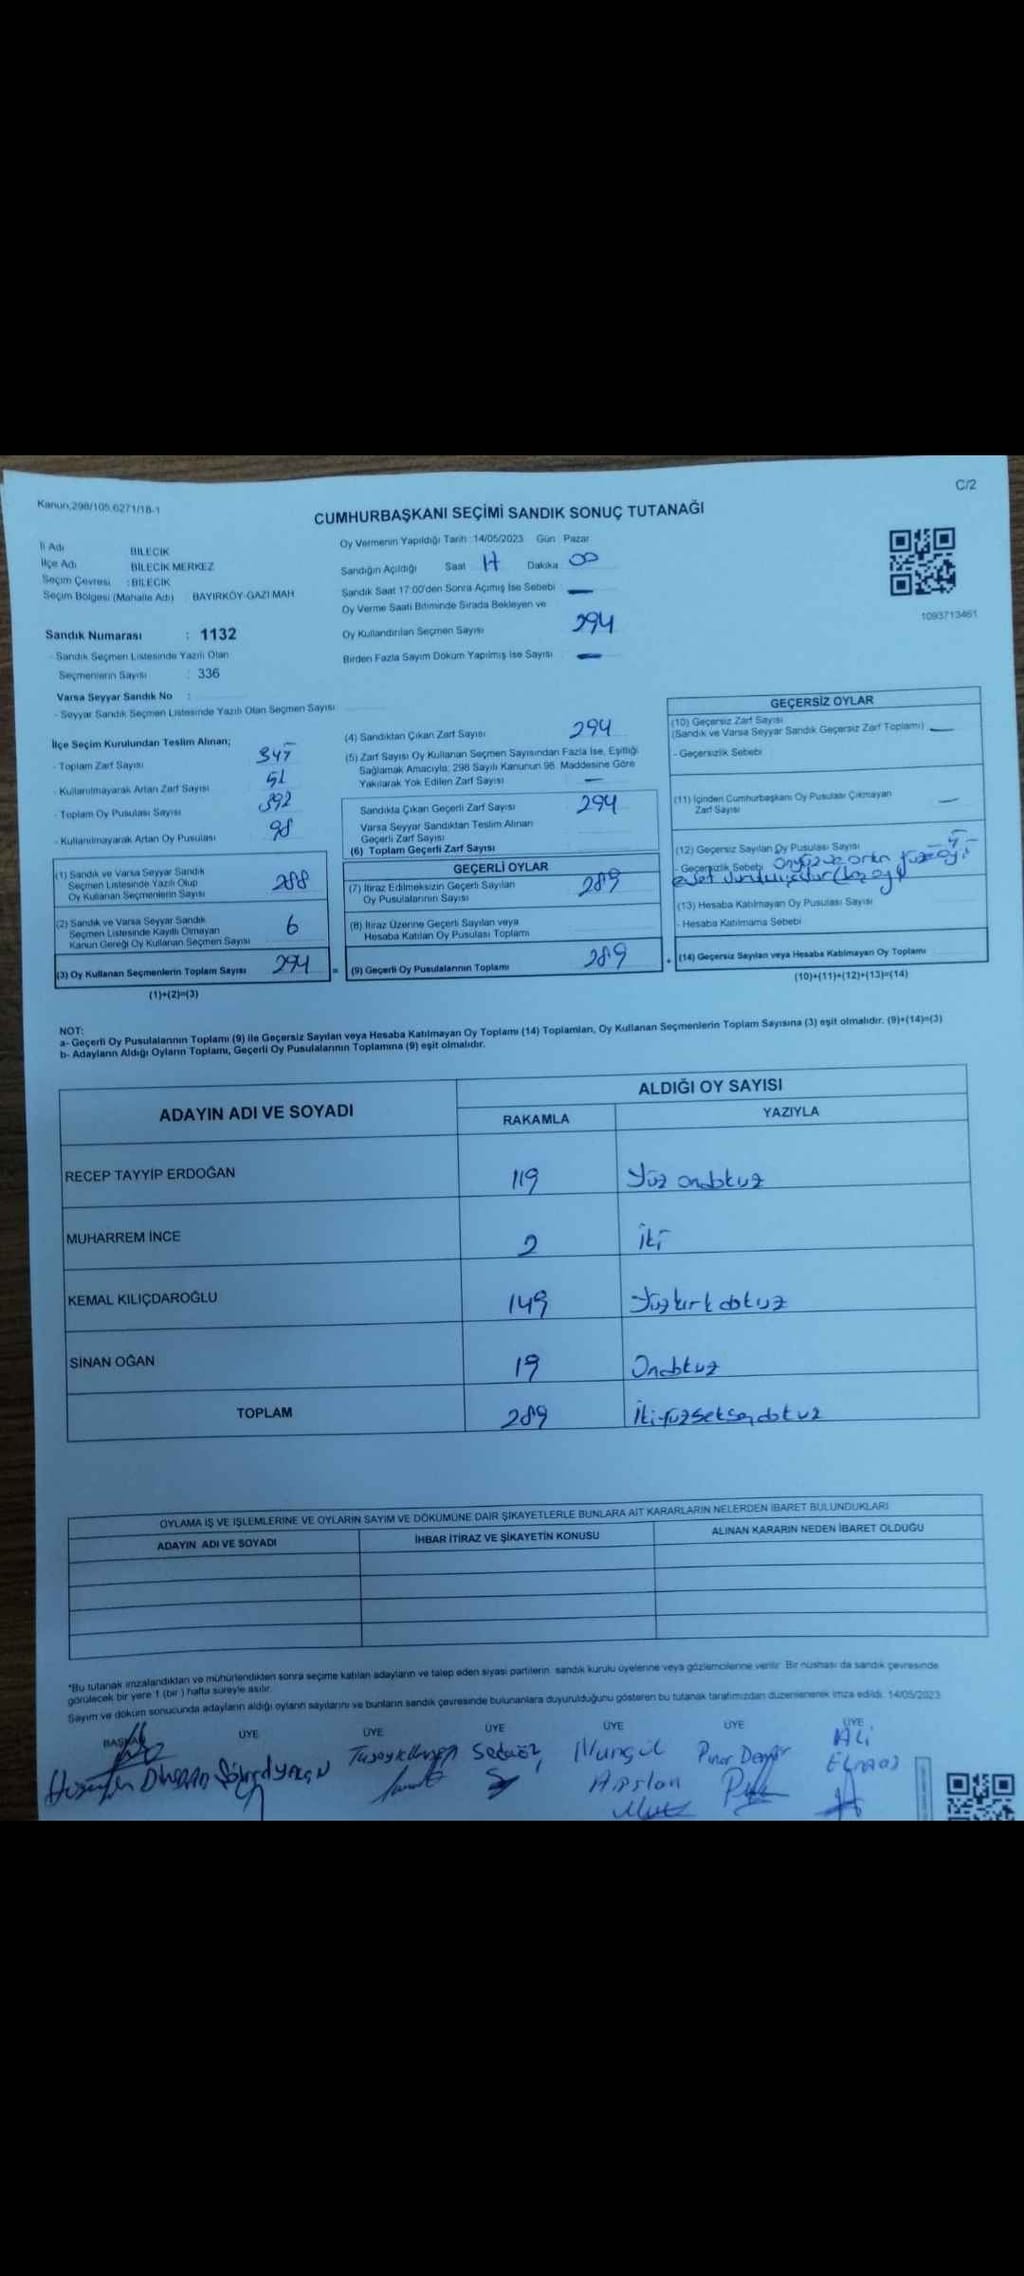 Kanun:298/105,6271/18-1
C/2
CUMHURBAŞKANI SEÇİMİ SANDIK SONUÇ TUTANAĞI
İl Adı BİLECİK
İlçe Adı BİLECİK MERKEZ
Seçim Çevresi : BİLECİK
Seçim Bölgesi (Mahalle Adı) : BAYIRKÖY-GAZİ MAH
Sandık Numarası : 1132
- Sandık Seçmen Listesinde Yazılı Olan
Seçmenlerin Sayısı : 336
Varsa Seyyar Sandık No :
- Seyyar Sandık Seçmen Listesinde Yazılı Olan Seçmen Sayısı
Oy Vermenin Yapıldığı Tarih :14/05/2023 Gün : Pazar
Sandığın Açıldığı Saat 17 Dakika 00
Sandık Saat 17:00'den Sonra Açılmış İse Sebebi : —
Oy Verme Saati Bitiminde Sırada Bekleyen ve
Oy Kullandırılan Seçmen Sayısı 294
Birden Fazla Sayım Döküm Yapılmış İse Sayısı : —
1093713461
İlçe Seçim Kurulundan Teslim Alınan;
- Toplam Zarf Sayısı
- Kullanılmayarak Artan Zarf Sayısı 51
- Toplam Oy Pusulası Sayısı 392
- Kullanılmayarak Artan Oy Pusulası 98
(1) Sandık ve Varsa Seyyar Sandık
Seçmen Listesinde Yazılı Olup
Oy Kullanan Seçmenlerin Sayısı 288
(2) Sandık ve Varsa Seyyar Sandık
Seçmen Listesinde Kayıtlı Olmayan
Kanun Gereği Oy Kullanan Seçmen Sayısı 6
(3) Oy Kullanan Seçmenlerin Toplam Sayısı 294 =
(1)+(2)=(3)
(4) Sandıktan Çıkan Zarf Sayısı 294
(5) Zarf Sayısı Oy Kullanan Seçmen Sayısından Fazla İse, Eşitliği
Sağlamak Amacıyla; 298 Sayılı Kanunun 98. Maddesine Göre
Yakılarak Yok Edilen Zarf Sayısı —
Sandıkta Çıkan Geçerli Zarf Sayısı 294
Varsa Seyyar Sandıktan Teslim Alınan
Geçerli Zarf Sayısı
(6) Toplam Geçerli Zarf Sayısı
GEÇERLİ OYLAR
(7) İtiraz Edilmeksizin Geçerli Sayılan 289
Oy Pusulalarının Sayısı
(8) İtiraz Üzerine Geçerli Sayılan veya
Hesaba Katılan Oy Pusulası Toplamı
(9) Geçerli Oy Pusulalarının Toplamı 289 +
GEÇERSİZ OYLAR
(10) Geçersiz Zarf Sayısı
(Sandık ve Varsa Seyyar Sandık Geçersiz Zarf Toplamı) —
- Geçersizlik Sebebi
(11) İçinden Cumhurbaşkanı Oy Pusulası Çıkmayan
Zarf Sayısı —
(12) Geçersiz Sayılan Oy Pusulası Sayısı
- Geçersizlik Sebebi
(13) Hesaba Katılmayan Oy Pusulası Sayısı
- Hesaba Katılmama Sebebi
(14) Geçersiz Sayılan veya Hesaba Katılmayan Oy Toplamı
(10)+(11)+(12)+(13)=(14)
NOT:
a- Geçerli Oy Pusulalarının Toplamı (9) ile Geçersiz Sayılan veya Hesaba Katılmayan Oy Toplamı (14) Toplamları, Oy Kullanan Seçmenlerin Toplam Sayısına (3) eşit olmalıdır. (9)+(14)=(3)
b- Adayların Aldığı Oyların Toplamı, Geçerli Oy Pusulalarının Toplamına (9) eşit olmalıdır.
ADAYIN ADI VE SOYADI ALDIĞI OY SAYISI
RAKAMLA YAZIYLA
RECEP TAYYİP ERDOĞAN 119 Yüz ondokuz
MUHARREM İNCE 2 İki
KEMAL KILIÇDAROĞLU 149 Yüzkırk dokuz
SİNAN OĞAN 19 Ondokuz
TOPLAM 289 İkiyüzseksendokuz
OYLAMA İŞ VE İŞLEMLERİNE VE OYLARIN SAYIM VE DÖKÜMÜNE DAİR ŞİKAYETLERLE BUNLARA AİT KARARLARIN NELERDEN İBARET BULUNDUKLARI
ADAYIN ADI VE SOYADI İHBAR İTİRAZ VE ŞİKAYETİN KONUSU ALINAN KARARIN NEDEN İBARET OLDUĞU
*Bu tutanak imzalandıktan ve mühürlendikten sonra seçime katılan adayların ve talep eden siyasi partilerin sandık kurulu üyelerine veya gözlemcilerine verilir. Bir nüshası da sandık çevresinde
görülecek bir yere 1 (bir) hafta süreyle asılır.
Sayım ve döküm sonucunda adayların aldığı oyların sayılarını ve bunların sandık çevresinde bulunanlara duyurulduğunu gösteren bu tutanak tarafımızdan düzenlenerek imza edildi. 14/05/2023
BAŞKAN ÜYE ÜYE ÜYE ÜYE ÜYE ÜYE
Nurgül Pınar Demir Ali
Arslan